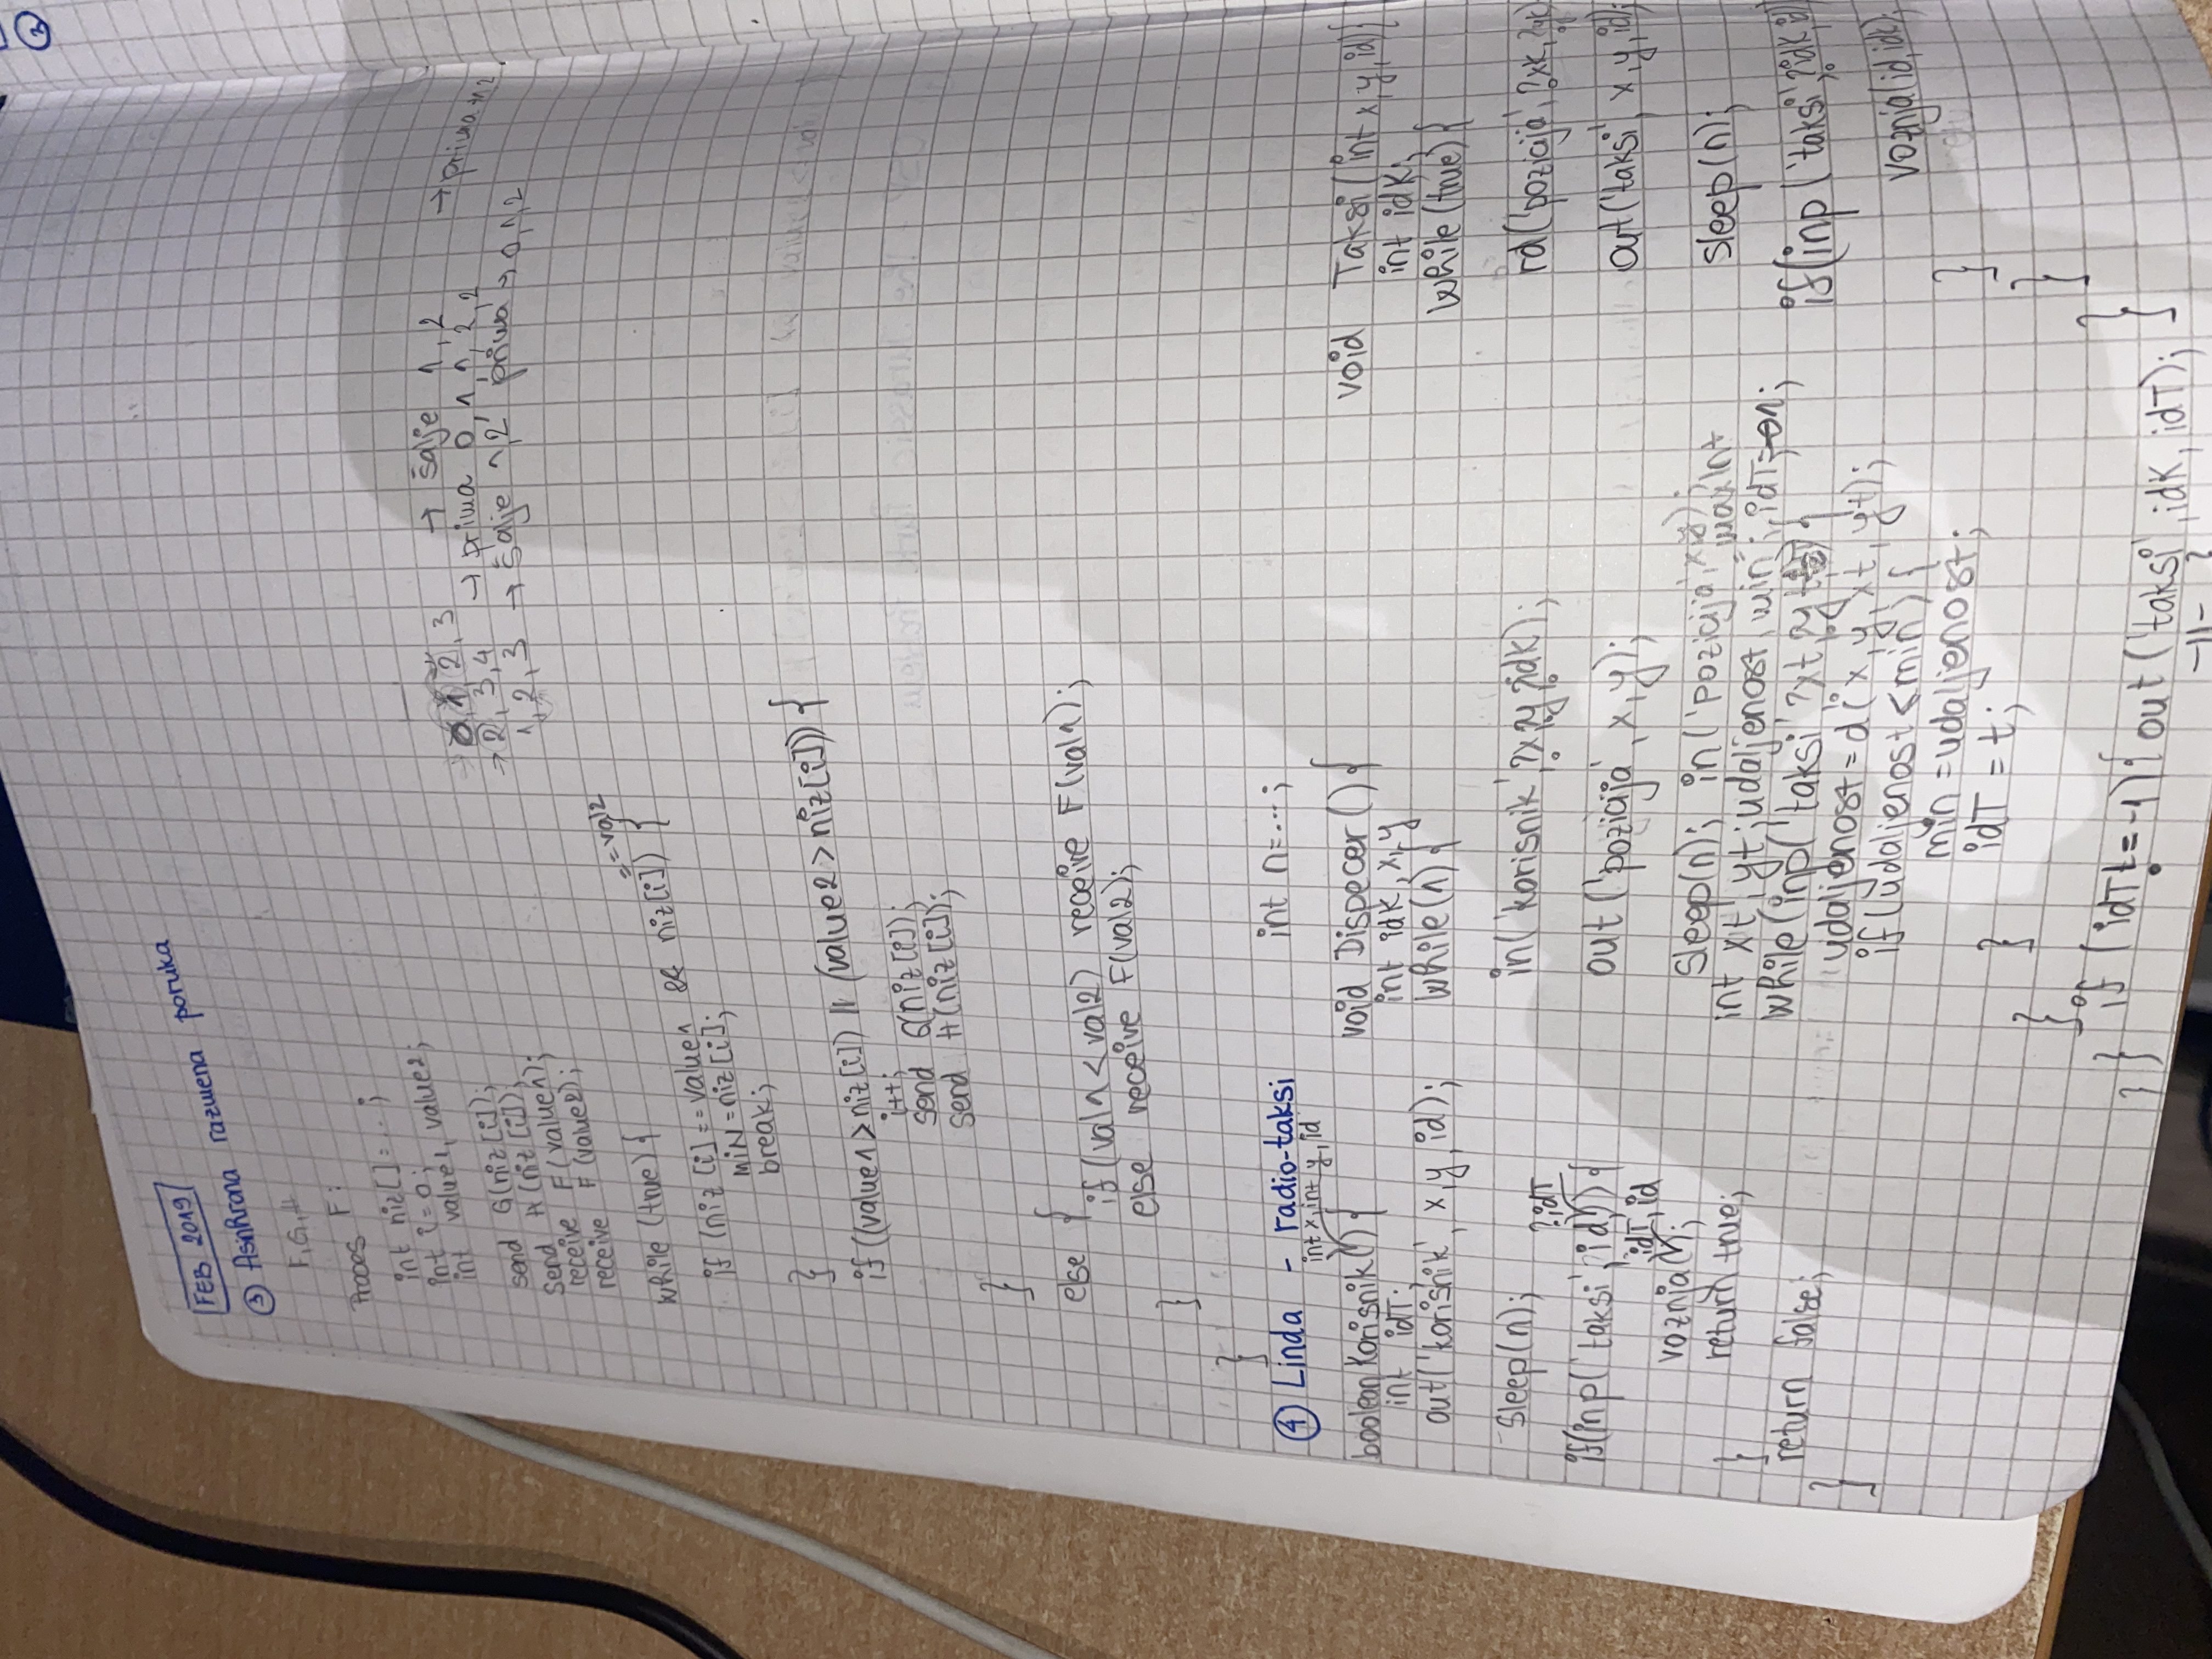 2
FEB 2019
③ Asinhrona razmena poruka
F, G, H
Proces F:
int niz[]=...;
int i=0;
int value1, value2;
send G(niz[i]);
send H(niz[i]);
receive F(value1);
receive F(value2);
0, 1, 2, 3 → šalje 1, 2 → prima 1,2
→ 2, 3, 4 → prima 0, 1, 1, 2, 2
1, 2, 3 → šalje 1,2 prima → 0,1,2
while (true) {
== val2
if (niz[i]==value1 && niz[i]) {
min=niz[i];
break;
}
if ((value1>niz[i]) || (value2>niz[i])) {
i++;
send G(niz[i]);
send H(niz[i]);
}
else {
if(val1<val2) receive F(val1);
else receive F(val2);
}
}
④ Linda - radio-taksi
int x, int y, id
boolean Korisnik() {
int idT;
out('korisnik', x, y, id);
sleep(n);
?idT
if(inp('taksi', id,)) {
idT, id
voznja();
return true;
}
return false;
}
int n=...;
void Dispecer() {
int idK, x, y
while(1) {
in('korisnik', ?x, ?y, ?idK);
out('pozicija', x, y);
sleep(n); in('pozicija', x, y);
=maxInt
int xt, yt; udaljenost, min; idT=-1;
while(inp('taksi', ?xt, ?yt)) {
udaljenost=d(x, y, xt, yt);
if(udaljenost<min) {
min=udaljenost;
idT = t;
}
}
if (idT!=-1) { out('taksi', idK, idT); }
} }
-||- ?
void Taksi(int x, y, id) {
int idK;
while(true) {
rd('pozicija', ?xk, ?yk)
out('taksi', x, y, id);
sleep(n);
if(inp('taksi', ?idK, id)
voznja(id, idK);
}
}